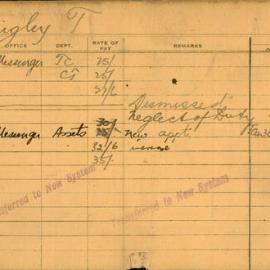 igley T
OFFICE DEPT. RATE OF PAY REMARKS
Messenger TC 25/
CT 26/
27/6
Dismissed
Neglect of Duty
Messenger Assets 30/ New appt.
32/6
35/
Transferred to New System
Transferred to New System